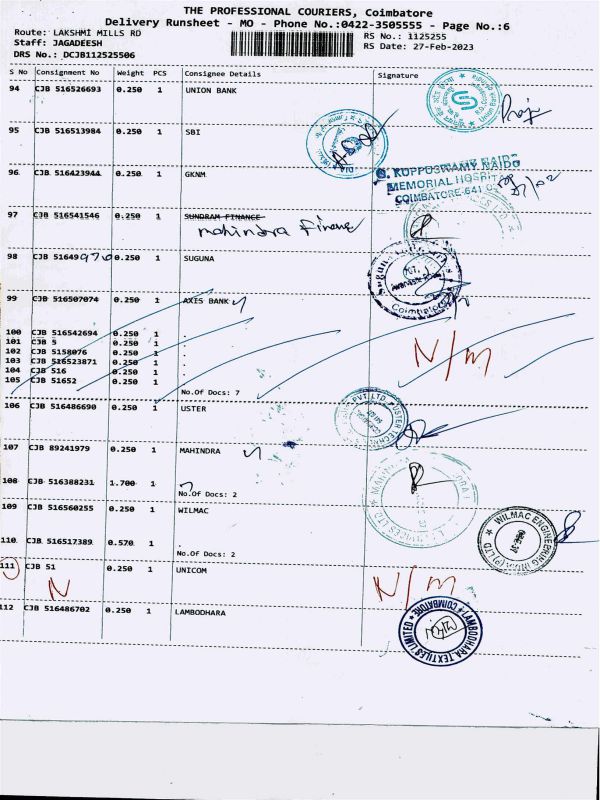 THE PROFESSIONAL COURIERS, Coimbatore
Delivery Runsheet - MO - Phone No.:0422-3505555 - Page No.:6
Route: LAKSHMI MILLS RD
RS No.: 1125255
Staff: JAGADEESH
RS Date: 27-Feb-2023
DRS No.: DCJB112525506
S No Consignment No Weight PCS Consignee Details Signature
94 CJB 516526693 0.250 1 UNION BANK
95 CJB 516513984 0.250 1 SBI
96 CJB 516423944 0.250 1 GKNM
G. KUPPUSWAMY NAIDU
MEMORIAL HOSPITAL
COIMBATORE-641 0
97 CJB 516541546 0.250 1 SUNDRAM FINANCE
mahindra finance
98 CJB 51649970 0.250 1 SUGUNA
Coimbatore
99 CJB 516507074 0.250 1 AXIS BANK
100 CJB 516542694 0.250 1 .
101 CJB 5 0.250 1 .
102 CJB 5158076 0.250 1 .
103 CJB 516523871 0.250 1 .
104 CJB 516 0.250 1 .
105 CJB 51652 0.250 1 .
N/M
No.Of Docs: 7
106 CJB 516486690 0.250 1 USTER
PVT. LTD. USTER TECHN
107 CJB 89241979 0.250 1 MAHINDRA
108 CJB 516388231 1.700 1
No.Of Docs: 2
109 CJB 516560255 0.250 1 WILMAC
WILMAC ENGINEERING INDIA (P) LTD
110 CJB 516517389 0.570 1 .
No.Of Docs: 2
111 CJB 51 0.250 1 UNICOM
N N/M
112 CJB 516486702 0.250 1 LAMBODHARA
LAMBODHARA TEXTILES LIMITED COIMBATORE